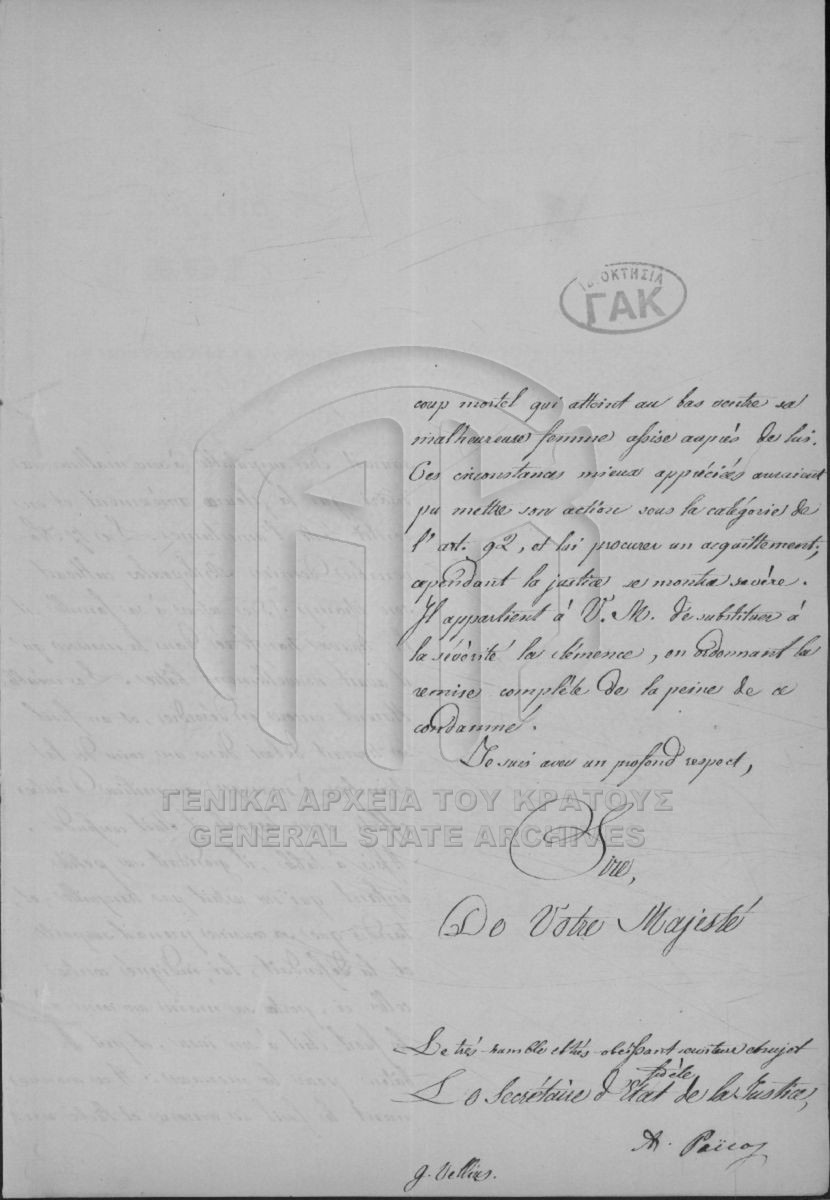 ΙΔΙΟΚΤΗΣΙΑ
ΓΑΚ
coup mortel qui atteint au bas ventre sa
malheureuse femme assise auprès de lui.
Ces circonstances mieux appréciées auraient
pu mettre son action sous la catégorie de
l'art. 92, et lui procurer un acquittement;
cependant la justice se montra sévère.
Il appartient à V. M. de substituer à
la sévérité la clémence, en ordonnant la
remise complète de la peine de ce
condamné.
Je suis avec un profond respect,
ΓΕΝΙΚΑ ΑΡΧΕΙΑ ΤΟΥ ΚΡΑΤΟΥΣ
GENERAL STATE ARCHIVES
Sire,
De Votre Majesté
Le très-humble et très-obéissant serviteur et sujet
fidèle
Le Secrétaire d'Etat de la Justice,
A. Païcos
G. Vellios.